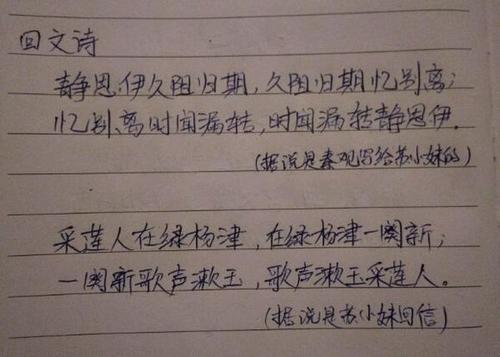 回文诗
静思伊久阻归期，久阻归期忆别离；
忆别离时闻漏转，时闻漏转静思伊。
(据说是秦观写给苏小妹的)
采莲人在绿杨津，在绿杨津一阕新；
一阕新歌声漱玉，歌声漱玉采莲人。
(据说是苏小妹回信)